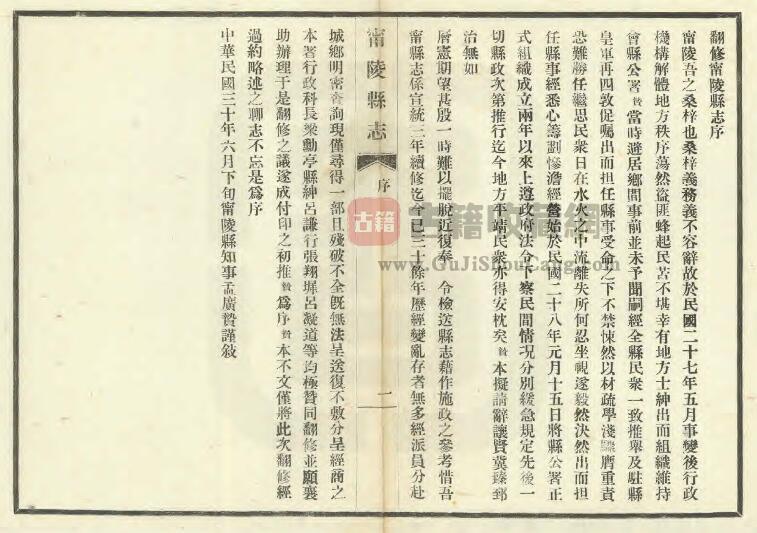 翻修甯陵縣志序
甯陵吾之桑梓也桑梓義務義不容辭故於民國二十七年五月事變後行政
機構解體地方秩序蕩然盜匪蜂起民苦不堪幸有地方士紳出而組織維持
會縣公署贊當時避居鄉間事前並未予聞嗣經全縣民衆一致推舉及駐縣
皇軍再四敦促屬出而担任縣事受命之下不禁悚然以材疏學淺驟膺重責
恐難勝任繼思民衆日在水火之中流離失所何忍坐視遂毅然決然出而担
任縣事經悉心籌劃慘澹經營始於民國二十八年元月十五日將縣公署正
式組織成立兩年以來上遵政府法令下察民間情况分別緩急規定先後一
切縣政次第推行迄今地方平靖民衆亦得安枕矣贊本擬請辭讓賢冀臻郅
治無如
層憲期望甚殷一時難以擺脫近復奉 令檢送縣志藉作施政之參考惜吾
甯縣志係宣統三年續修迄今已三十餘年歷經變亂存者無多經派員分赴
甯陵縣志
序
二
城鄉明密查詢現僅尋得一部且殘破不全既無法呈送復不敷分呈經商之
本署行政科長梁勳亭縣紳呂謙行張翔墀呂凝道等均極贊同翻修並願襄
助辦理于是翻修之議遂成付印之初推贊爲序贊本不文僅將此次翻修經
過約略述之聊志不忘是爲序
中華民國三十年六月下旬甯陵縣知事孟廣贊謹敍
古籍
古籍收藏網
www.GuJiShouCang.com